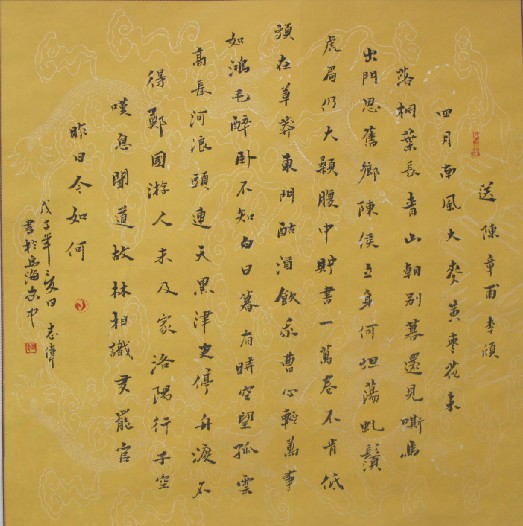 送陳章甫 李頎
四月南風大麥黃棗花未
落桐葉長青山朝別暮還見嘶馬
出門思舊鄉陳侯立身何坦蕩虬鬚
虎眉仍大顙腹中貯書一萬卷不肯低
頭在草莽東門酤酒飲我曹心輕萬事
如鴻毛醉臥不知白日暮有時空望孤雲
高長河浪頭連天黑津吏停舟渡不
得鄭國游人未及家洛陽行子空
嘆息聞道故林相識多罷官
昨日今如何
戊子年日志偉
書於海中